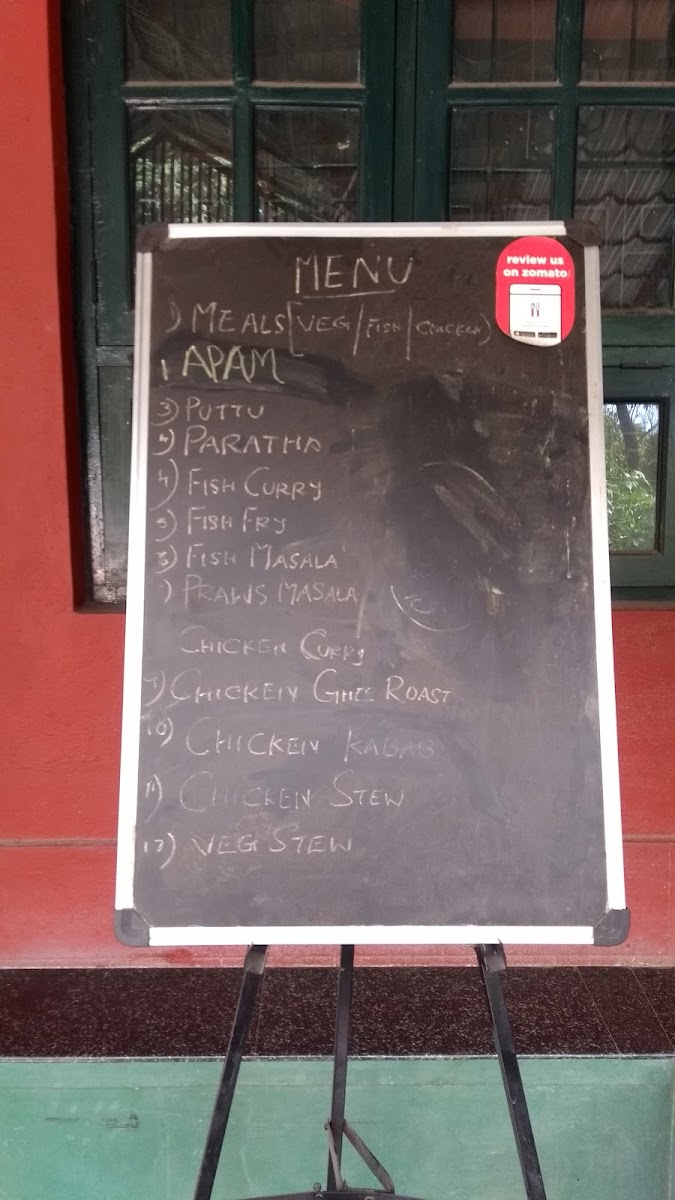 MENU
review us
on zomato
1) MEALS [VEG/FISH/CHICKEN)
1 APAM
3) PUTTU
PARATHA
4) FISH CURRY
5) FISH FRY
FISH MASALA
) PRAWS MASALA
CHICKEN CURRY
9) CHICKEN GHEE ROAST
10) CHICKEN KABAB
11) CHICKEN STEW
12) VEG STEW